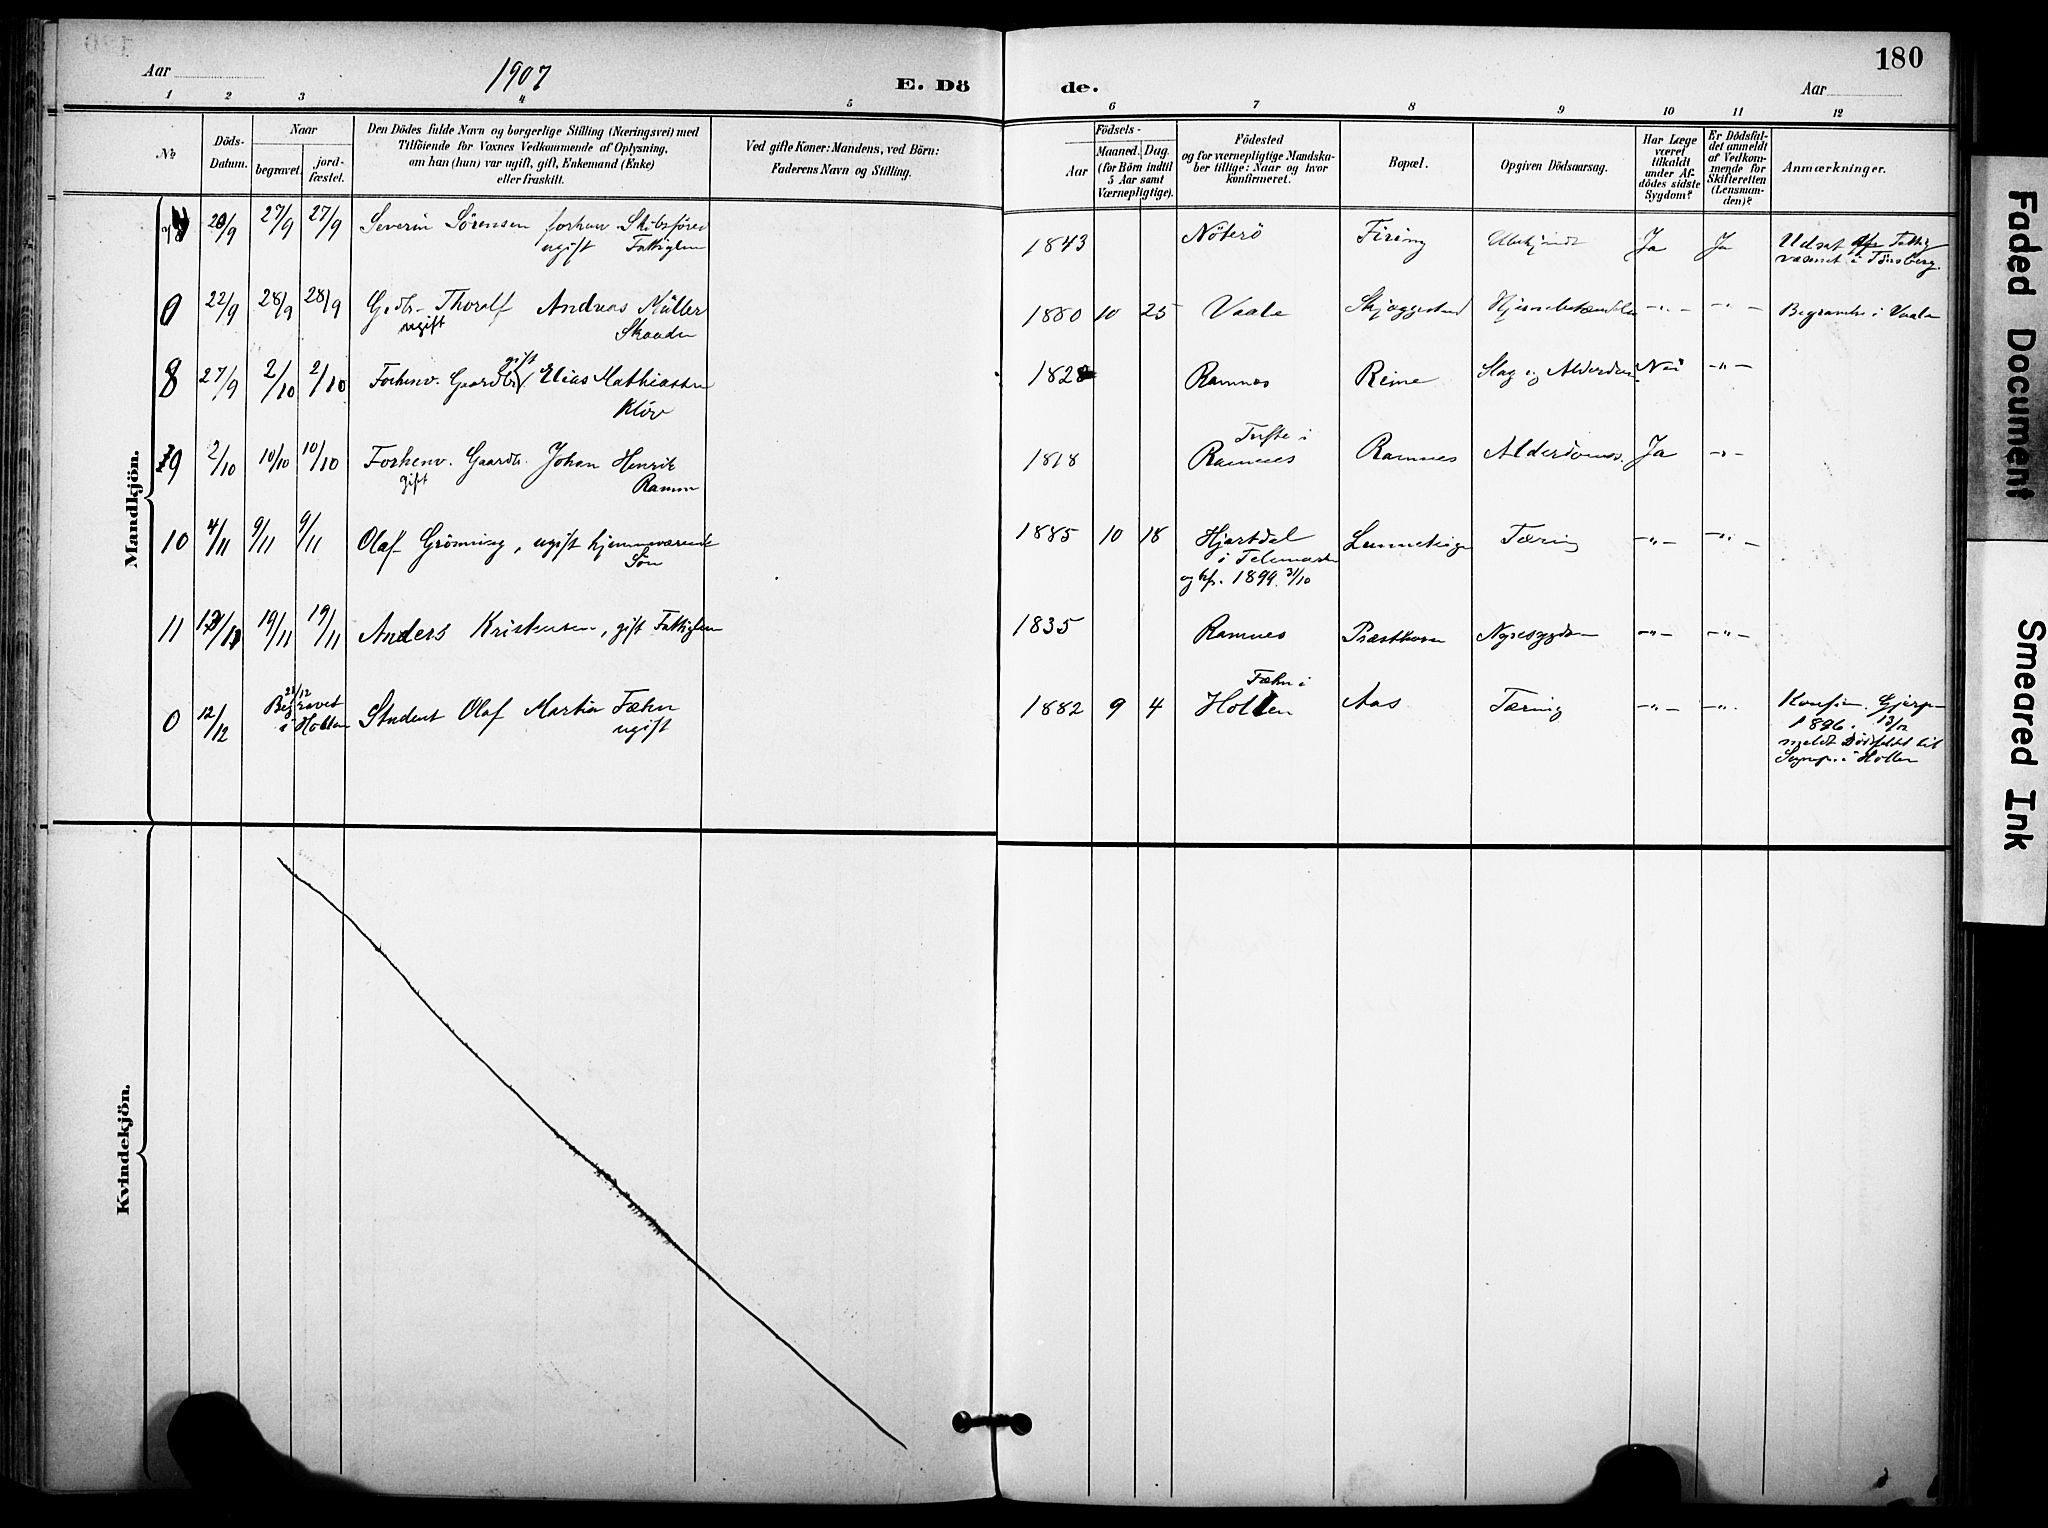 180
Aar 1907 E. Dö de. Aar
1 2 3 4 5 6 7 8 9 10 11 12
No Döds-Datum. Naar begravet. jord-fæstet.
Den Dödes fulde Navn og borgerlige Stilling (Næringsvei) med
Tilföiende for Voxnes Vedkommende af Oplysning,
om han (hun) var ugift, gift, Enkemand (Enke)
eller fraskilt.
Ved gifte Koner: Mandens, ved Börn:
Faderens Navn og Stilling.
Födsels-
Aar Maaned. Dag.
(for Börn indtil
5 Aar samt
Værnepligtige).
Födested
og for værnepligtige Mandska-
ber tillige: Naar og hvor
konfirmeret.
Bopæl.
Opgiven Dödsaarsag.
Har Læge
været
tilkaldt
under Af-
dödes sidste
Sygdom?
Er Dödsfal-
det anmeldt
af Vedkom-
mende for
Skifteretten
(Lensman-
den)?
Anmærkninger.
Mandkjön.
27/9 27/9 Severin Sörensen forhen Skibsförer
ugift Fattiglem
1843 Nöterö Firing Ubekjendt Ja Ja Udsat Fattig
væsenet i Tönsberg.
0 22/9 28/9 28/9 Gdbr. Thoralf Andreas Müller
ugift Skaaden
1880 10 25 Vaale Skjeggestad -"- -"- Begravet i Vaale
8 27/9 2/10 2/10 Forhenv. Gaardbr. gift Elias Mathiassen
Klöv
Ramnes Reine Slag og Alderdom Nei -"-
9 2/10 10/10 10/10 Forhenv. Gaardbr. Johan Henrik
gift Ramm
1818 Tufte i
Ramnes Ramnes Alderdoms. Ja -"-
10 4/11 9/11 9/11 Olaf Grönning, ugift hjemmeværende
Sön
1885 10 18 Hjartdal
i Telemarken
1899. 31/10
Tæring -"- -"-
11 19/11 19/11 Anders Kristensen, gift Fattiglem
1835 Ramnes Præsthoven Nyresygdom -"- -"-
0 12/12 21/12 Begravet
i Hollen
Student Olaf Martin Fæhn
ugift
1882 9 4 Fæhn i
Hollen Aas Tæring -"- -"- Konfirm. Gjerpen
1896. 13/12
meldt Dödsfaldet til
Sognepr. i Hollen
Kvindekjön.
Faded Document
Smeared Ink